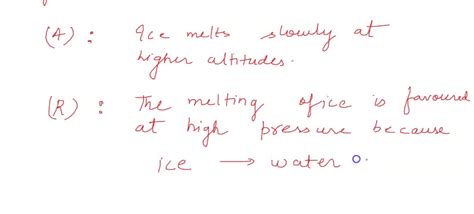 (A) : Ice melts slowly at
higher altitudes.
(R) : The melting of ice is favoured
at high pressure because
ice → water